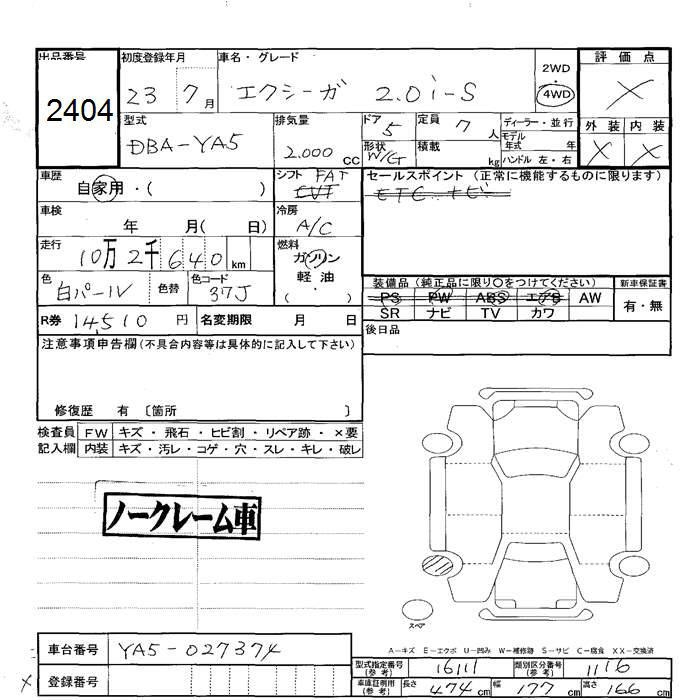 出品番号 初度登録年月 車名・グレード 2WD・4WD 評価点
2404 23 7月 エクシーガ 2.0i-S X
型式 排気量 ドア 5 定員 7人 ディーラー・並行 外装 内装
DBA-YA5 2.000cc 形状 W/G 積載 kg モデル年式 年 X X
ハンドル 左・右
車歴 自家用・( ) シフト FAT セールスポイント (正常に機能するものに限ります)
CVT ETC ナビ
車検 年 月( 日) 冷房 A/C
走行 10万2千640km 燃料 ガソリン
軽油・( )
色 白パール 色替 色コード 37J 装備品 (純正品に限り〇をつけてください) 新車保証書
PS PW ABS エアB AW 有・無
R券 14,510円 名変期限 月 日 SR ナビ TV カワ
注意事項申告欄(不具合内容等は具体的に記入して下さい) 後日品
修復歴 有 〔箇所 〕
検査員 FW キズ・飛石・ヒビ割・リペア跡・×要
記入欄 内装 キズ・汚レ・コゲ・穴・スレ・キレ・破レ
ノークレーム車
スペア
A-キズ E-エクボ U-凹み W-補修跡 S-サビ C-腐食 XX-交換済
車台番号 YA5-027374 型式指定番号(参考) 16111 類別区分番号(参考) 1116
X 登録番号 車庫証明用(参考) 長さ 474cm 幅 177cm 高さ 166cm